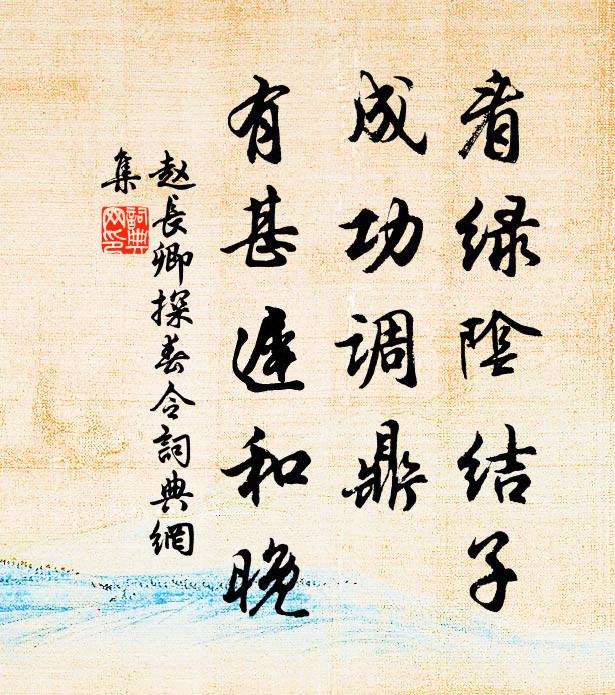 看绿阴结子
成功调鼎
有甚迟和晚
赵長卿探春令詞典網
集
詞典
网印